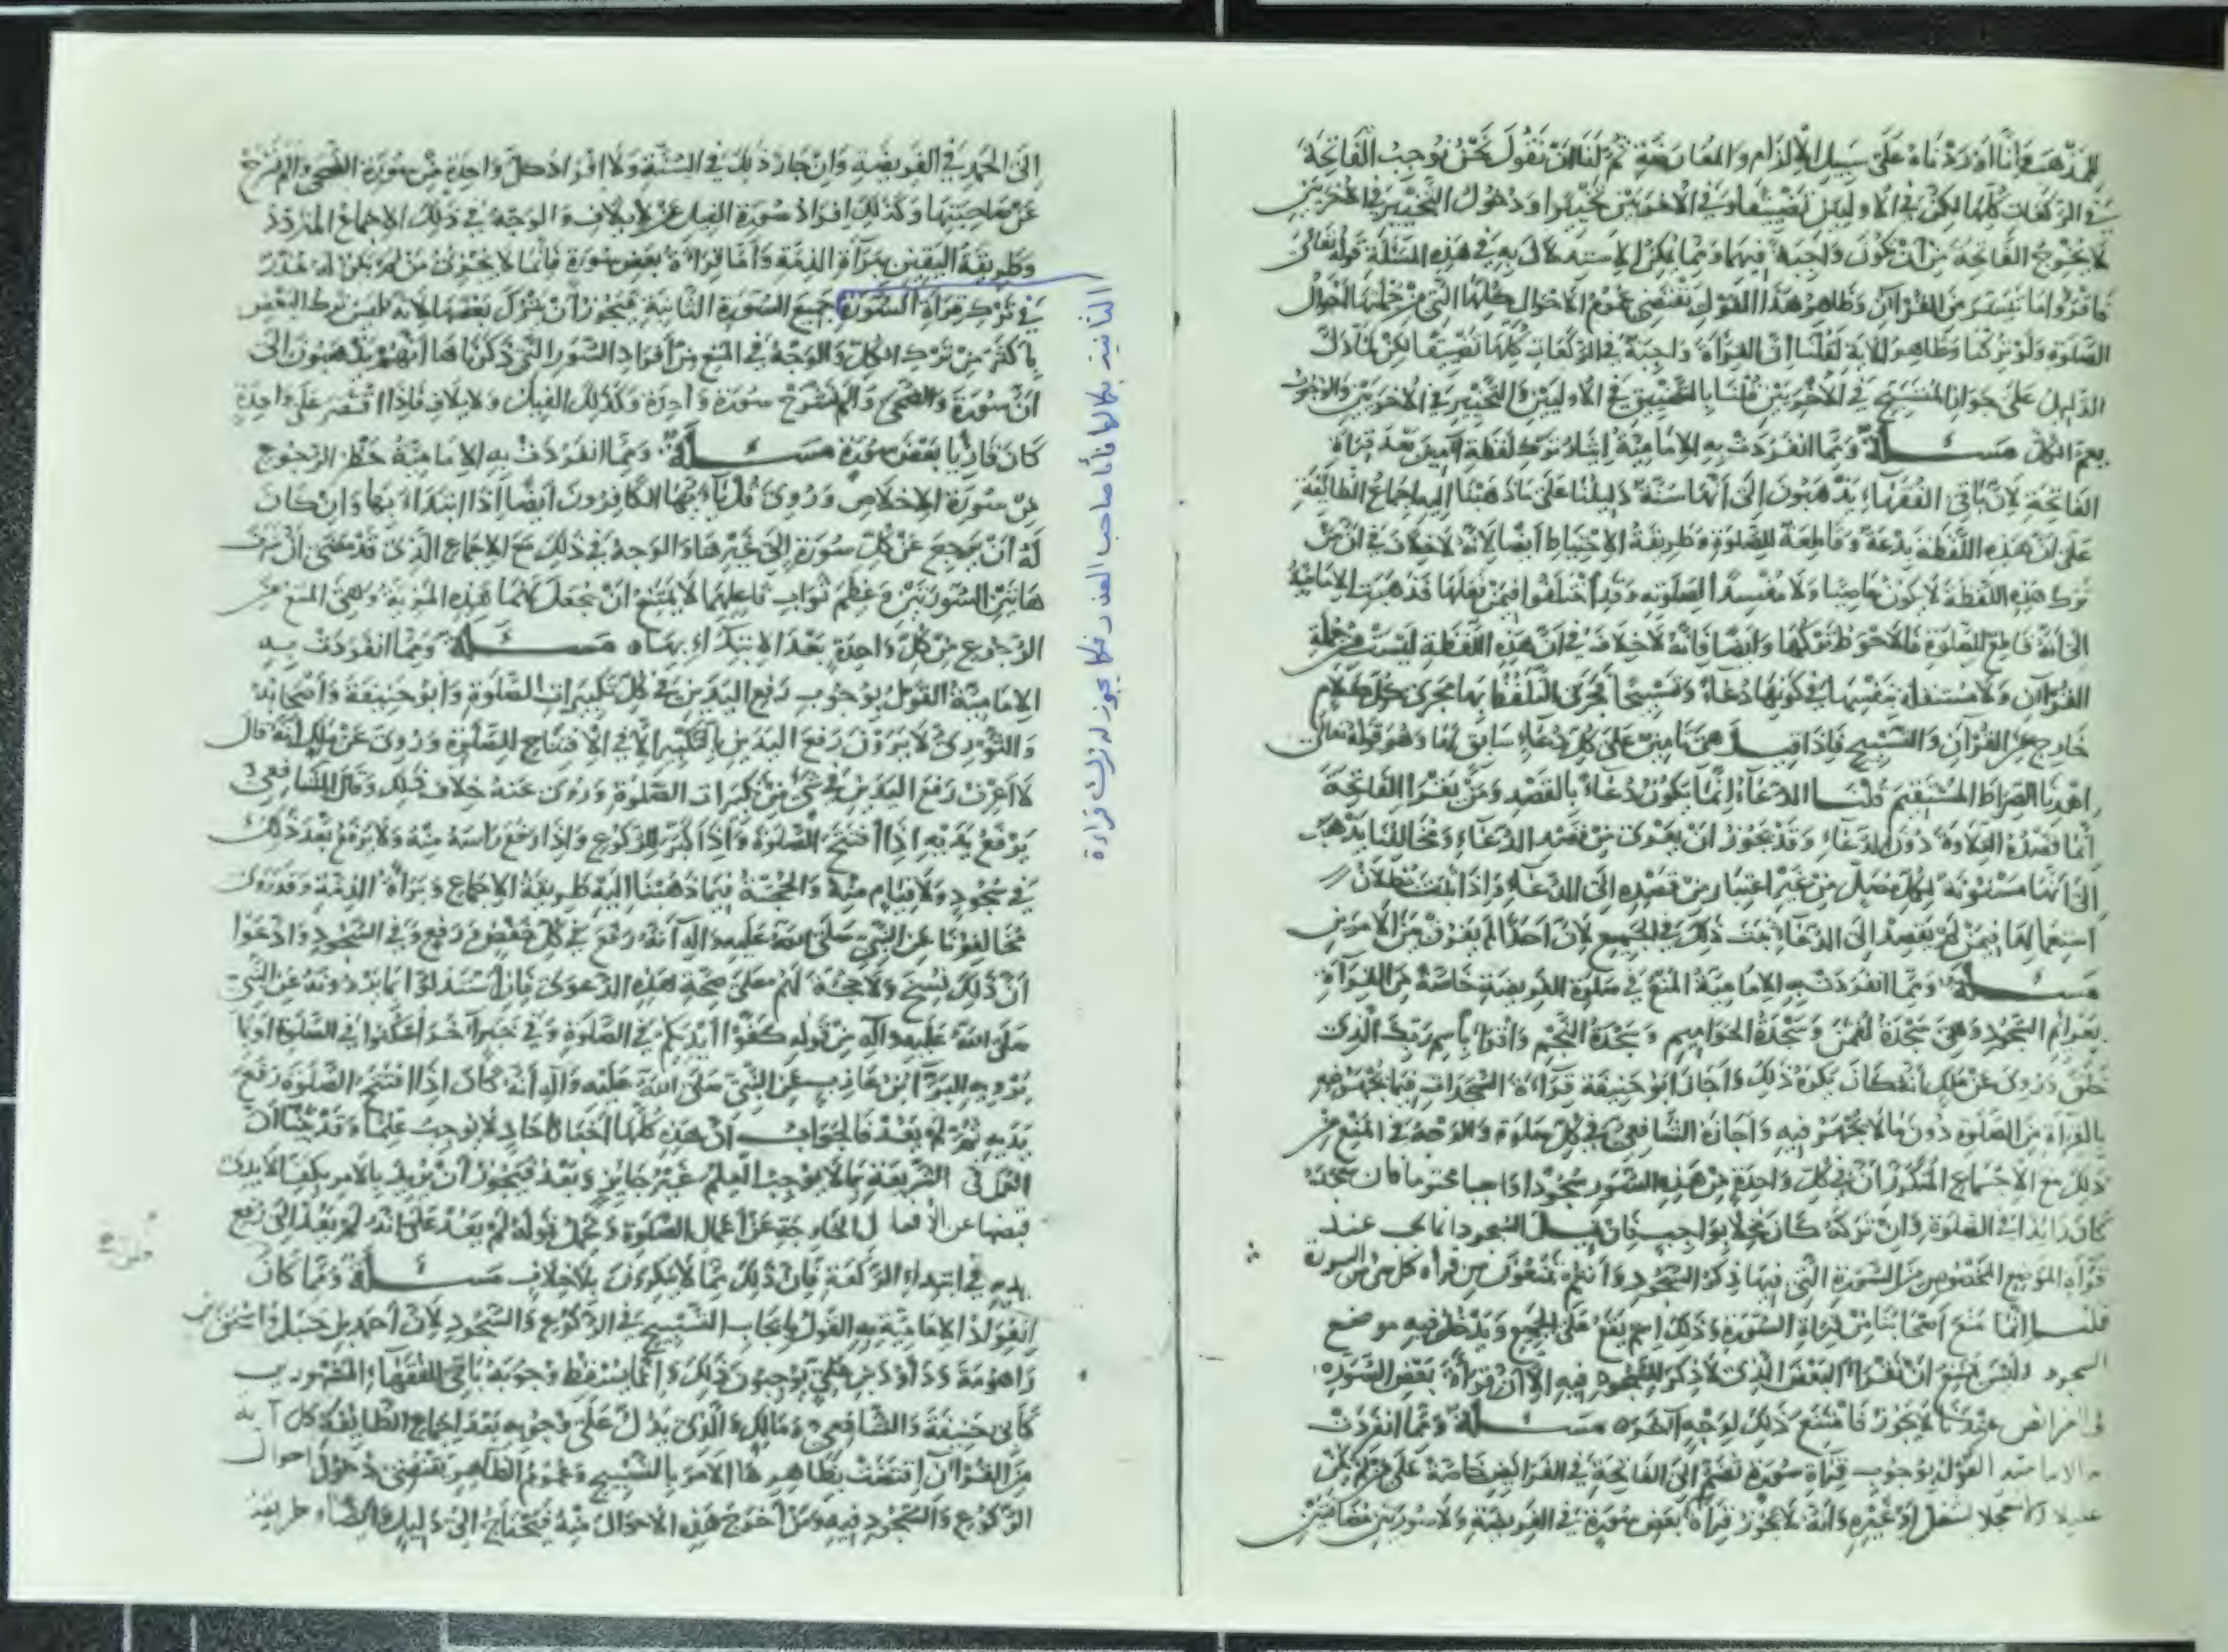 المذهب فإنا أوردناه على سبيل الإلزام والمعارضة ثم لنا أن نقول نحن نوجب الفاتحة
في الركعات كلها لكن في الأوليين تضييقا وفي الأخريين تخييرا ودخول التخيير في الأخريين
لا يخرج الفاتحة من أن تكون واجبة فيهما ومما يمكن الاستدلال به في هذه المسألة قوله تعالى
فاقرؤا ما تيسر من القرآن وظاهر هذا القول يقتضي عموم الأحوال كلها التي من جملتها أحوال
الصلوة ولو تركنا وظاهر الآية لقلنا إن القراءة واجبة في الركعات كلها تضييقا لكن لما دل
الدليل على جواز التسبيح في الأخريين قلنا بالتضييق في الأوليين والتخيير في الأخريين والوجوب
يعم الكل مسئلة ومما انفردت به الإمامية إيثار ترك لفظة آمين بعد قراءة
الفاتحة لأن باقي الفقهاء يذهبون إلى أنها سنة دليلنا على ما ذهبنا إليه إجماع الطائفة
على أن هذه اللفظة بدعة وقاطعة للصلوة وطريقة الاحتياط أيضا لأنه لا خلاف في أن من
ترك هذه اللفظة لا يكون عاصيا ولا مفسدا لصلوته وقد اختلفوا فيمن فعلها فذهبت الإمامية
الى أنه قاطع للصلوة فالأحوط تركها وأيضا فإنه لا خلاف في أن هذه اللفظة ليست من جملة
القرآن ولا مستقلة بنفسها في كونها دعاء وتسبيحا فجرى التلفظ بها مجرى كل كلام
خارج عن القرآن والتسبيح فإذا قيل هي تأمين على كل دعاء سابق لها وهو قوله تعالى
اهدنا الصراط المستقيم قلنا الدعاء إنما يكون دعاء بالقصد ومن يقرأ الفاتحة
إنما قصده التلاوة دون الدعاء وقد يجوز أن يعرى من قصد الدعاء ومخالفنا يذهب
إلى أنها مسنونة لكل مصل من غير اعتبار من قصده إلى الدعاء وإذا ثبت بطلان
استعمالها فيمن لم يقصد إلى الدعاء ثبت ذلك في الجميع لأن أحدا لم يفرق بين الأمرين
مسئلة ومما انفردت به الإمامية المنع في صلوة الفريضة خاصة من القراءة
بعزائم السجود وهي سجدة لقمن وسجدة الحواميم وسجدة النجم واقرأ باسم ربك الذي
خلق وروى عن ملك أنه كان يكره ذلك وأجاز أبو حنيفة قراءة السجدات فيما يجهر فيه
بالقراءة من الصلوة دون ما لا يجهر فيه وأجازه الشافعي في كل صلوة والوجه في المنع من
ذلك مع الإجماع المتكرر أن في كل واحدة من هذه السور سجودا واجبا محتوما فان سجده
كان زائدا في الصلوة وإن تركه كان مخلا بواجب فإن قيل السجود إنما يجب عند
قراءة الموضع المخصوص من السورة التي فيها ذكر السجود وأنتم تمنعون من قراءة كل شيء من السورة
قلنا إنما منع أصحابنا من قراءة السورة وذلك اسم يقع على الجميع ويدخل فيه موضع
السجود وليس يمتنع أن نقرأ البعض الذي لا ذكر للسجود فيه إلا أن قراءة بعض السورة
في الفرائض عندنا لا يجوز فامتنع ذلك لوجه آخر مسئلة ومما انفردت
به الإمامية القول بوجوب قراءة سورة تضم إلى الفاتحة في الفرائض خاصة على من لم يكن
عليلا أو معجلا بشغل أو غيره وأنه لا يجوز قراءة بعض سورة في الفريضة ولا سورتين مضافتين
إلى الحمد في الفريضة وإن جاز ذلك في السنة ولا إفراد كل واحدة من سورة الضحى وألم نشرح
عن صاحبتها وكذلك إفراد سورة الفيل عن لإيلاف والوجه في ذلك الإجماع المتردد
وطريقة اليقين ببراءة الذمة وأما قراءة بعض سورة فإنما لا يجزى من لم يكن له عذر
في ترك قراءة السورة جميع السورة الثانية فيجوز أن يترك بعضها لأنه ليس ترك البعض
بأكثر من ترك الكل والوجه في المنع من أفراد السور التي ذكرناها أنهم يذهبون إلى
أن سورة والضحى وألم نشرح سورة واحدة وكذلك الفيل ولإيلاف فإذا اقتصر على واحدة
كان قارئا بعض سورة مسئلة ومما انفردت به الإمامية حظر الرجوع
من سورة الإخلاص وروى قل يا أيها الكافرون أيضا إذا ابتداء بها وإن كان
له أن يرجع عن كل سورة إلى غيرها والوجه في ذلك مع الإجماع الذي قد مضى أن شرف
هاتين السورتين وعظم ثواب فاعلهما لا يمتنع أن يجعل لهما هذه المزية وهي المنع من
الرجوع من كل واحدة بعد الابتداء بها مسئلة ومما انفردت به
الإمامية القول بوجوب رفع اليدين في كل تكبيرات الصلوة وأبو حنيفة وأصحابه
والثوري لا يرون رفع اليدين بالتكبير إلا في الافتتاح للصلوة وروى عن ملك أنه قال
لا أعرف رفع اليدين في شيء من تكبيرات الصلوة وروى عنه خلاف ذلك وقال الشافعي
يرفع يديه إذا افتتح الصلوة وإذا كبر للركوع وإذا رفع رأسه منه ولا يرفع بعد ذلك
في سجود ولا قيام منه والحجة فيما ذهبنا إليه طريقة الإجماع وبراءة الذمة وقد روى
مخالفونا عن النبي صلى الله عليه وآله أنه رفع في كل خفض ورفع وفي السجود وادعوا
أن ذلك نسخ ولا حجة لهم على صحة هذه الدعوى فإن استدلوا بما يروونه عن النبي
صلى الله عليه وآله من قوله كفوا أيديكم في الصلوة وفي خبر آخر اسكنوا في الصلوة أو بما
يرويه البراء بن عازب عن النبي صلى الله عليه وآله أنه كان إذا افتتح الصلوة رفع
يديه ثم لم يعد فالجواب أن هذه كلها أخبار آحاد لا يوجب علما وقد بينا أن
العمل في الشريعة بما لا يوجب العلم غير جايز وبعد فيجوز أن يريد بالأمر بكف الأيدي
قبضها عن الأفعال الخارجة عن أعمال الصلوة ونحمل قوله لم يعد على أنه لم يعد إلى رفع
يديه في ابتداء الركعة فإن ذلك مما لا ينكرون بلا خلاف مسئلة ومما كان
انفراد الإمامية به القول بإيجاب التسبيح في الركوع والسجود لأن أحمد بن حنبل وإسحق بن
راهويه وداود بن علي يوجبون ذلك وإنما يسقط وجوبه باقي الفقهاء المشهورين
كأبي حنيفة والشافعي ومالك والذي يدل على وجوبه بعد إجماع الطائفة كل آية
من القرآن اقتضت بظاهرها الأمر بالتسبيح وعموم الظاهر يقتضى دخول أحوال
الركوع والسجود فيه ومن أخرج هذه الأحوال منه فيحتاج إلى دليل وأيضا وطريقة
الثانية بكمالها فأما صاحب العذر فكما يجوز له ترك قراءة